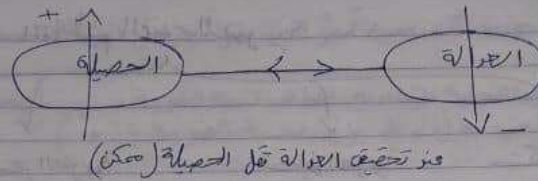 +
الحصيلة
العدالة
-
عند تحقيق العدالة تقل الحصيلة (ممكن)